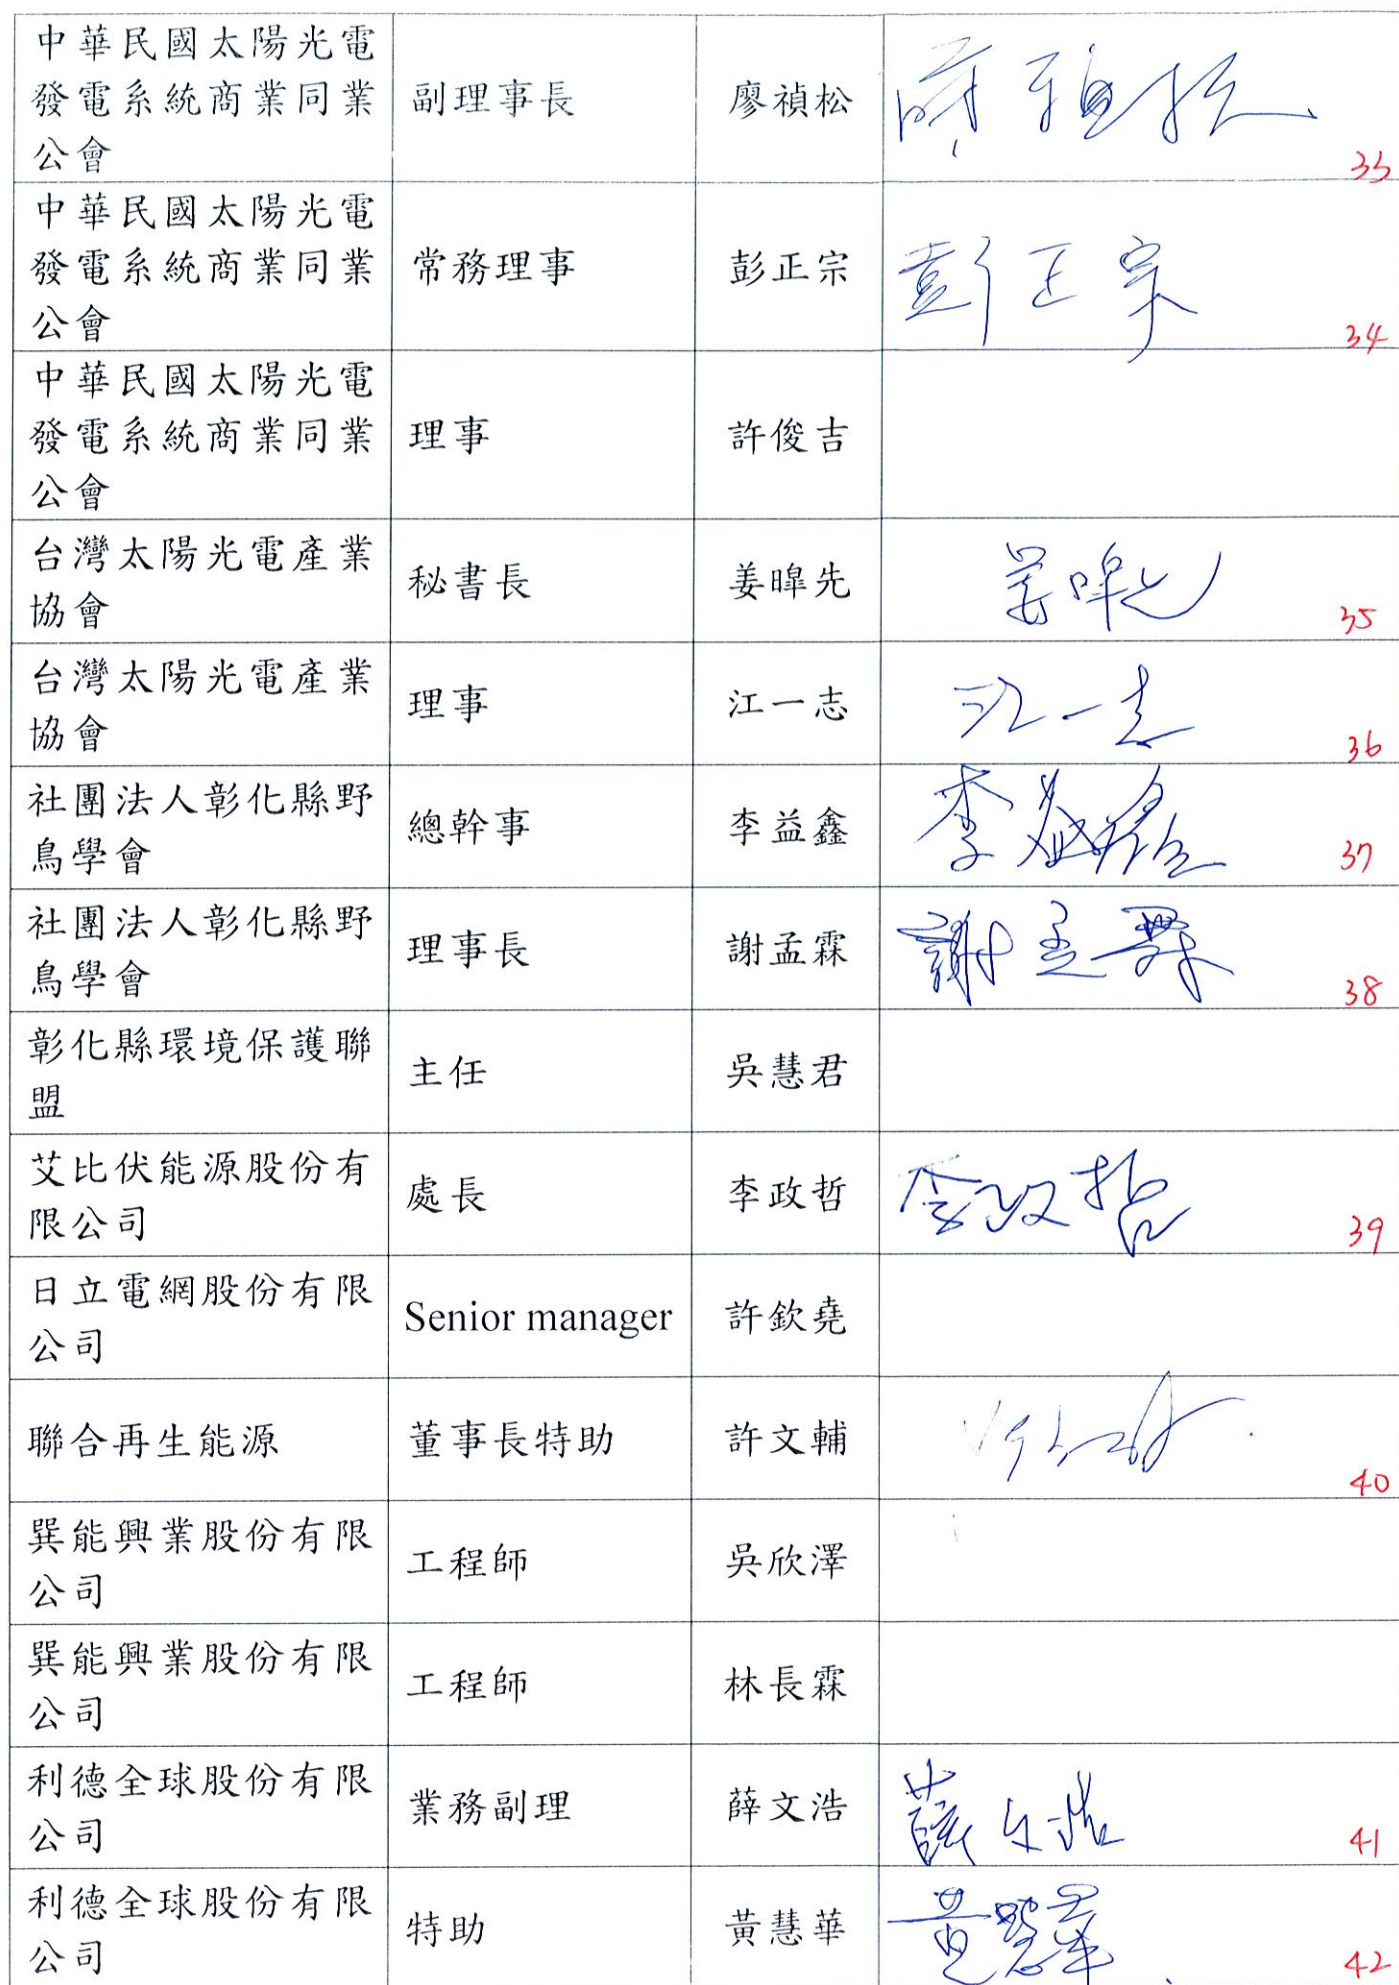 中華民國太陽光電
發電系統商業同業
公會
副理事長
廖禎松
廖禎松
33
中華民國太陽光電
發電系統商業同業
公會
常務理事
彭正宗
彭正宗
34
中華民國太陽光電
發電系統商業同業
公會
理事
許俊吉
台灣太陽光電產業
協會
秘書長
姜皞先
姜皞先
35
台灣太陽光電產業
協會
理事
江一志
江一志
36
社團法人彰化縣野
鳥學會
總幹事
李益鑫
李益鑫
37
社團法人彰化縣野
鳥學會
理事長
謝孟霖
謝孟霖
38
彰化縣環境保護聯
盟
主任
吳慧君
艾比伏能源股份有
限公司
處長
李政哲
李政哲
39
日立電網股份有限
公司
Senior manager
許欽堯
聯合再生能源
董事長特助
許文輔
40
巽能興業股份有限
公司
工程師
吳欣澤
巽能興業股份有限
公司
工程師
林長霖
利德全球股份有限
公司
業務副理
薛文浩
薛文浩
41
利德全球股份有限
公司
特助
黃慧華
黃慧華
42